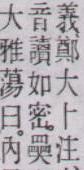 義鄭大卜注
音讀如密㬥
大雅蕩曰内